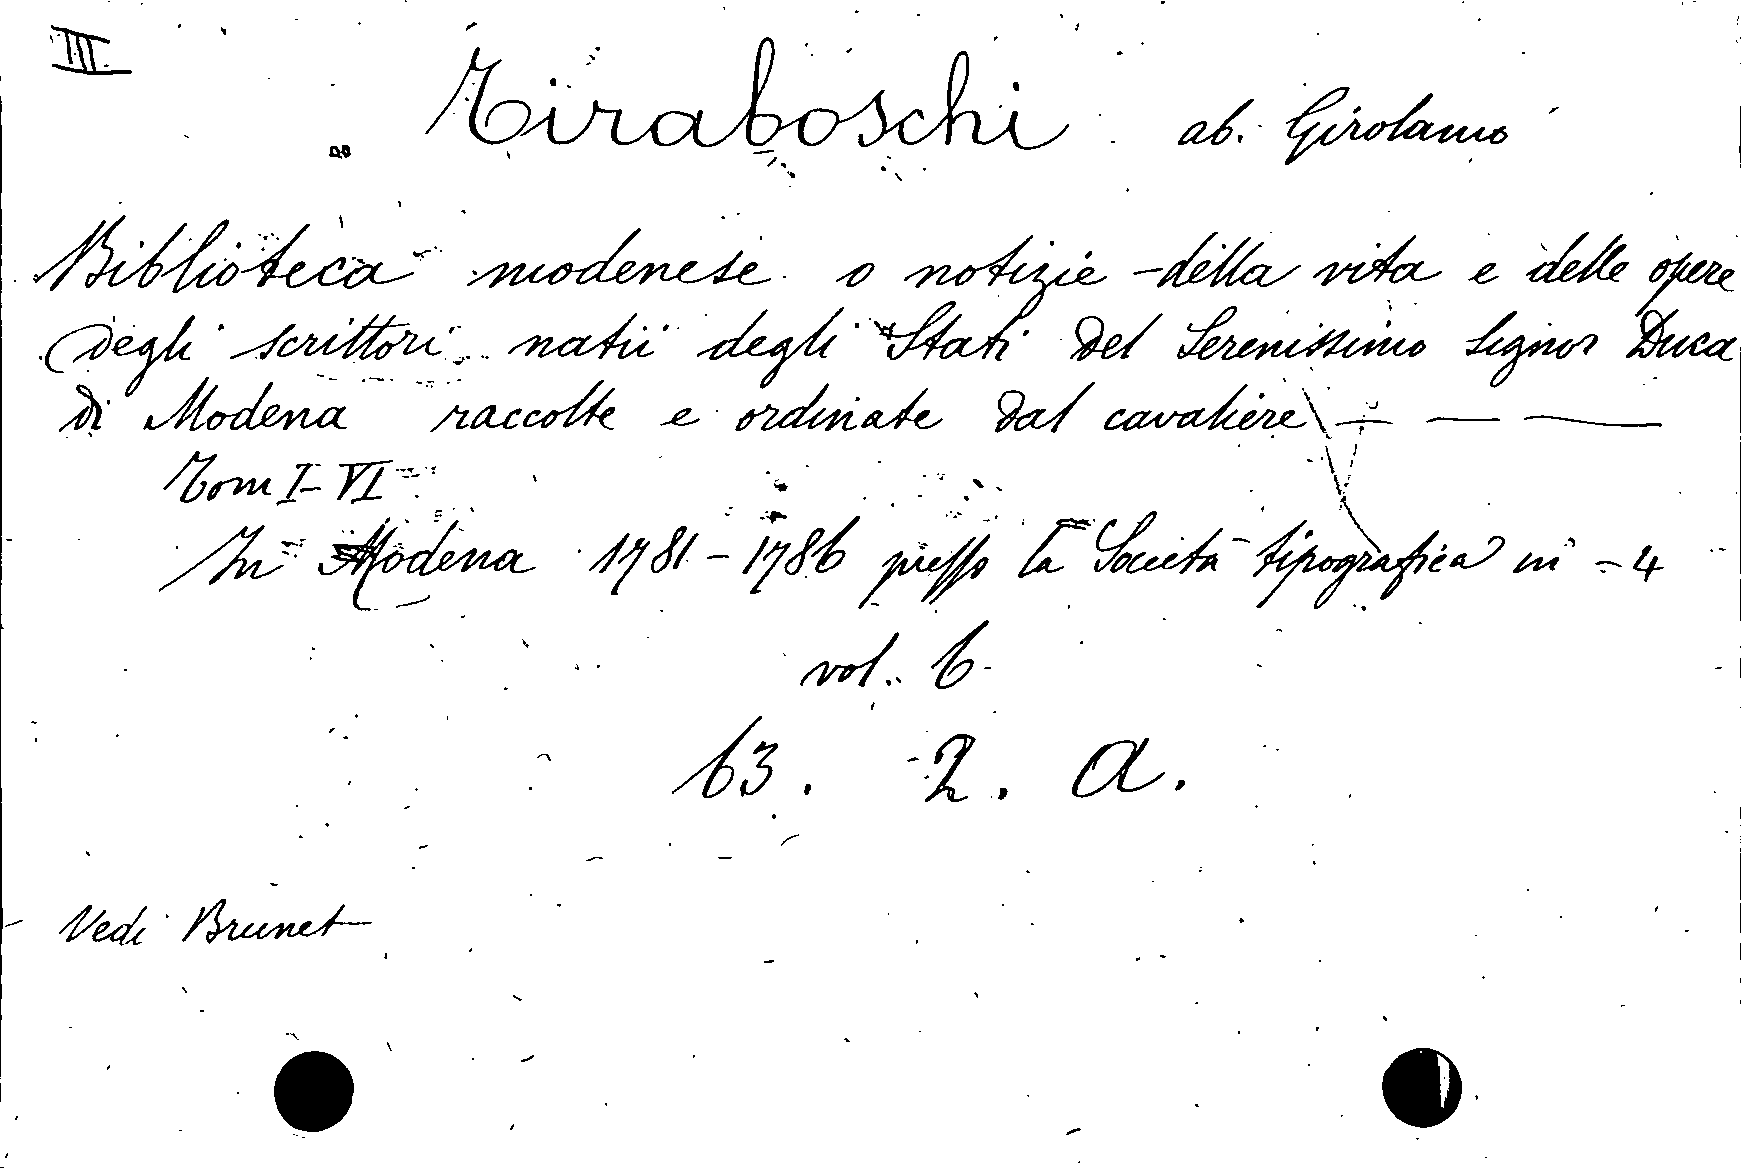 III
Tiraboschi ab. Girolamo
Biblioteca modenese o notizie della vita e delle opere
degli scrittori natii degli Stati del Serenissimo Signor Duca
di Modena raccolte e ordinate dal cavaliere — — —
Tom I-VI
In Modena 1781-1786 presso la Società tipografica in-4
vol. 6
63. 2. A.
Vedi Brunet